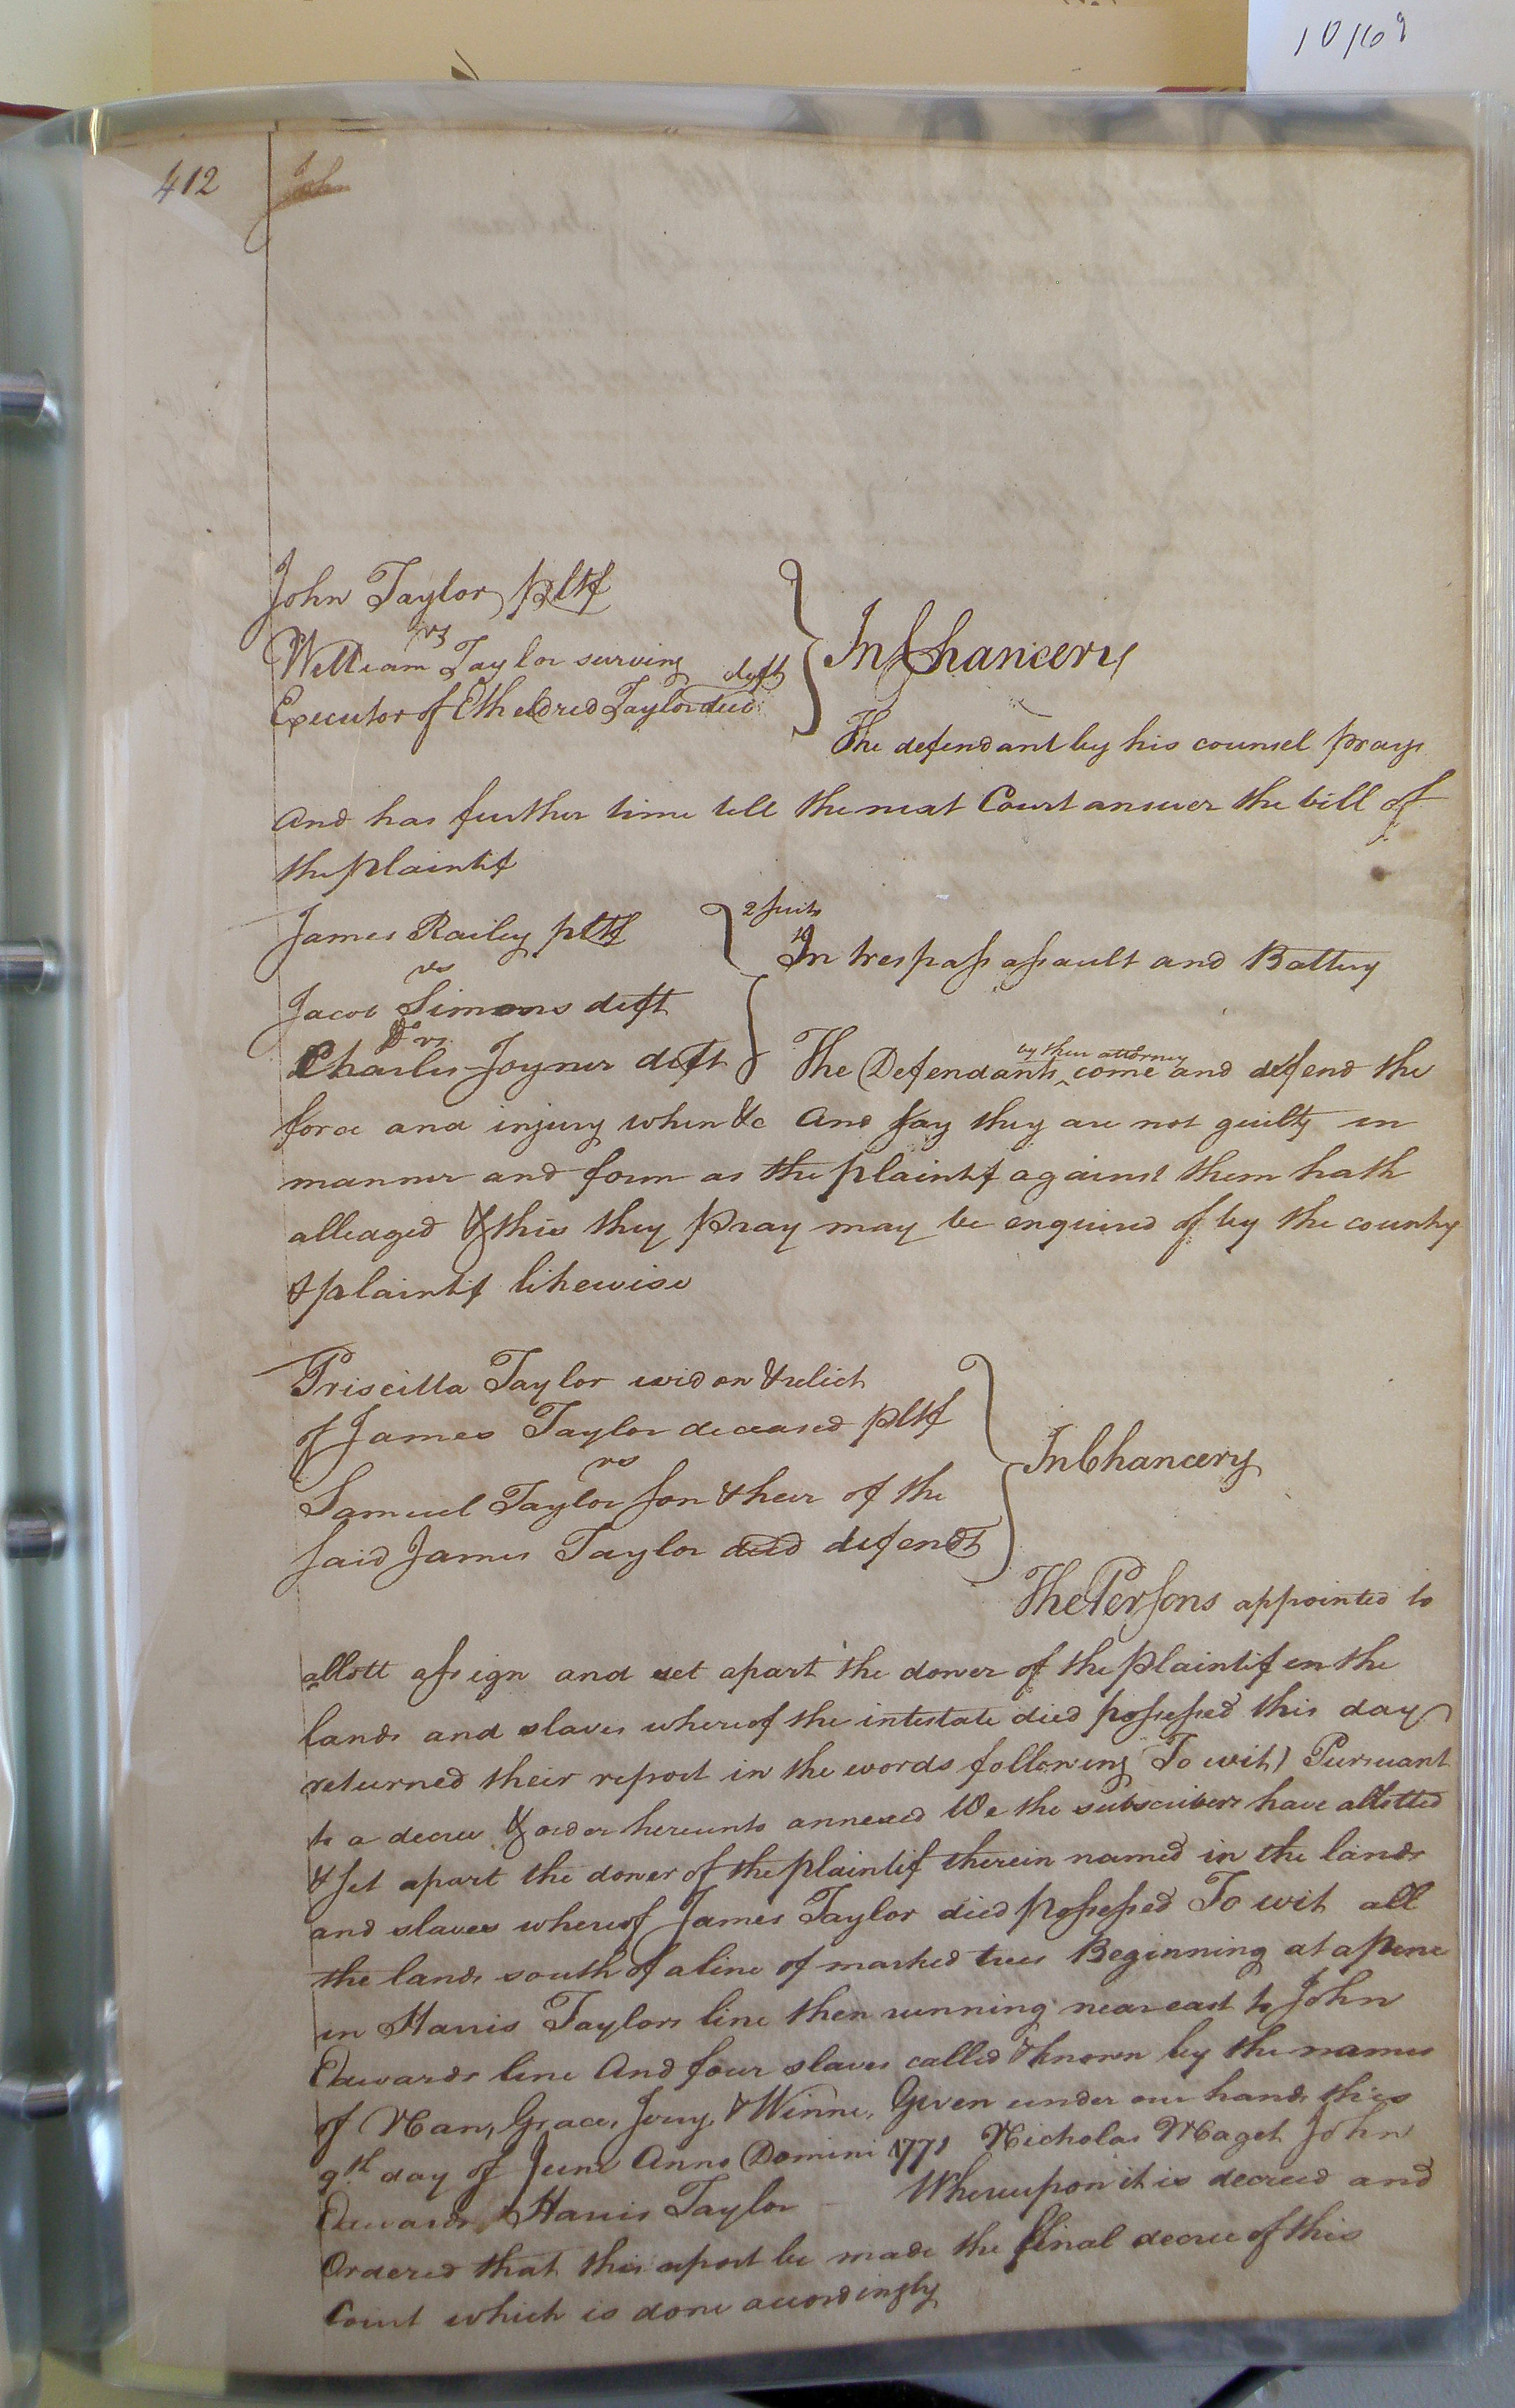 10/69
412
Joh
John Taylor pltf
vs
William Taylor surving deft
Executor of Etheldred Taylor decd
In Chancery
The defendant by his counsel prays
and has further time till the next Court answer the bill of
the plaintif
James Railey pltf
2 suits
vs
In trespass assault and Battery
Jacob Simons deft
Do vs
Charles Joyner deft
by their attorney
The Defendants ^ come and defend the
force and injury when &c and say they are not guilty in
manner and form as the plaintif against them hath
alleaged & this they pray may be enquired of by the country
& plaintif likewise
Priscilla Taylor widow & relict
of James Taylor deceased pltf
vs
Samuel Taylor son & heir of the
said James Taylor decd defendt
In Chancery
The Persons appointed to
allott assign and set apart the dower of the plaintif in the
lands and slaves whereof the intestate died possessed this day
returned their report in the words following To wit) Pursuant
to a decree & order hereunto annexed We the subscribers have allotted
& set apart the dower of the plaintif therein named in the lands
and slaves whereof James Taylor died possessed To wit all
the lands south of a line of marked trees Beginning at a pine
in Harris Taylors line then running near east to John
Edwards line And four slaves called & known by the names
of Nan, Grace, Jerry, & Winne, Given under our hands this
9th day of June Anno Domini 1771 Nicholas Maget John
Edwards, Harris Taylor Whereupon it is decreed and
Ordered that this report be made the final decree of this
Court which is done accordingly